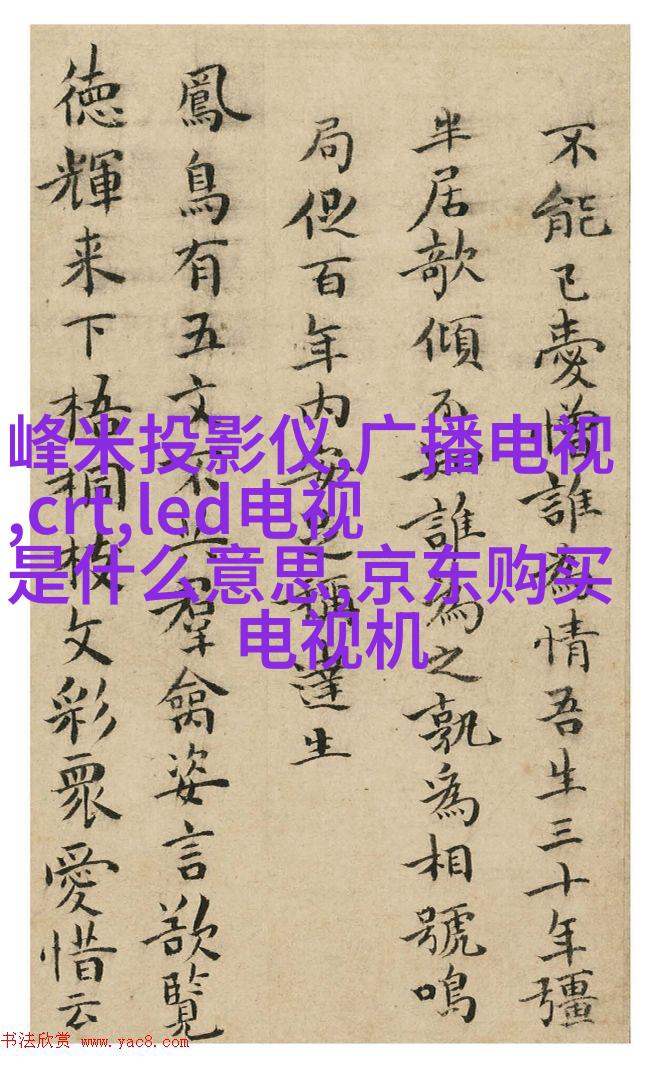 不能已憂憎誰為情吾生三十年彊
半居欹傾不誰為之孰為相號鳴
局促百年内安稱達生
鳳鳥有五文不共羣禽姿言欲覧
徳輝来下梧桐枝文彩眾愛惜云
峰米投影仪,广播电视
,crt,led电视
是什么意思,京东购买
电视机
书法欣赏 www.yac8.com